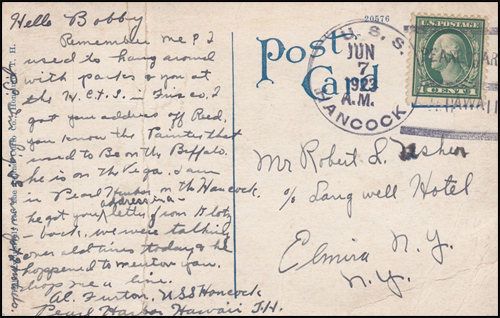 Hello Bobby
Remember me? I
used to hang around
with parks & you at
the N.C.T.S. in Frisco. I
got you address off Red,
you know the Painter that
used to Be on the Buffalo.
he is on the Vega. I am
in Pearl Harbor on the Hancock.
address in a
he got your letter from
back, we were talking
over old times today & he
happened to mention you.
drop me a line.
Al. Furton, USS Hancock
Pearl Harbor Hawaii T.H.
20576
Post
Card
U.S.S.
JUN
7
1923
A.M.
HANCOCK
U.S. POSTAGE
1 CENTS 1
PEARL HAR
HAWAII
Mr Robert L. Usher
c/o Langwell Hotel
Elmira N.Y.
N.Y.